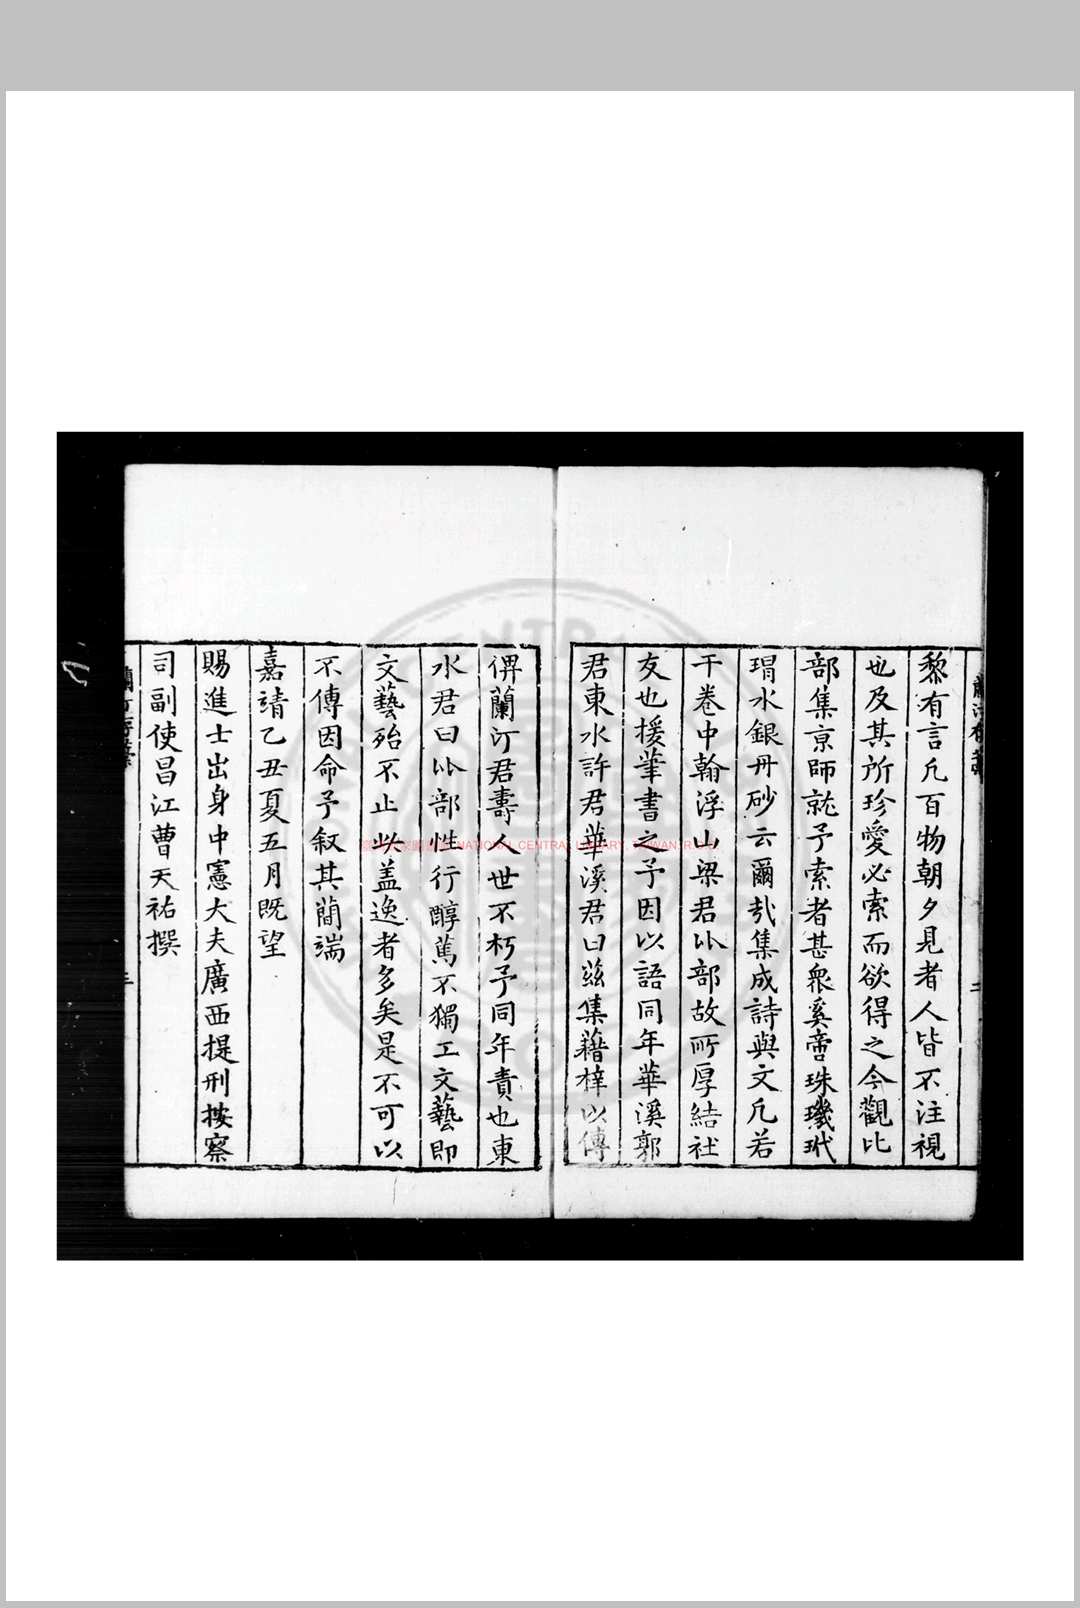 黎有言凡百物朝夕見者人皆不注視
也及其所珍愛必索而欲得之今觀比
部集京師就予索者甚衆奚啻珠璣玳
瑁水銀丹砂云爾哉集成詩與文凡若
干卷中翰浮山梁君比部故所厚結社
友也援筆書之予因以語同年華溪郭
君東水許君華溪君曰茲集藉梓以傳
俾蘭汀君壽人世不朽予同年責也東
水君曰比部性行醇篤不獨工文藝即
文藝殆不止以盖逸者多矣是不可以
不傳因命予叙其蕳端
嘉靖乙丑夏五月既望
賜進士出身中憲大夫廣西提刑按察
司副使昌江曹天祐撰
蘭汀存藁
NATIONAL CENTRAL LIBRARY, TAIWAN, R.O.C.